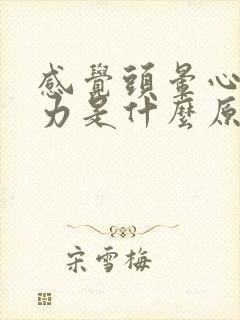 感覺頭暈心
力是什麼原
宋雪梅